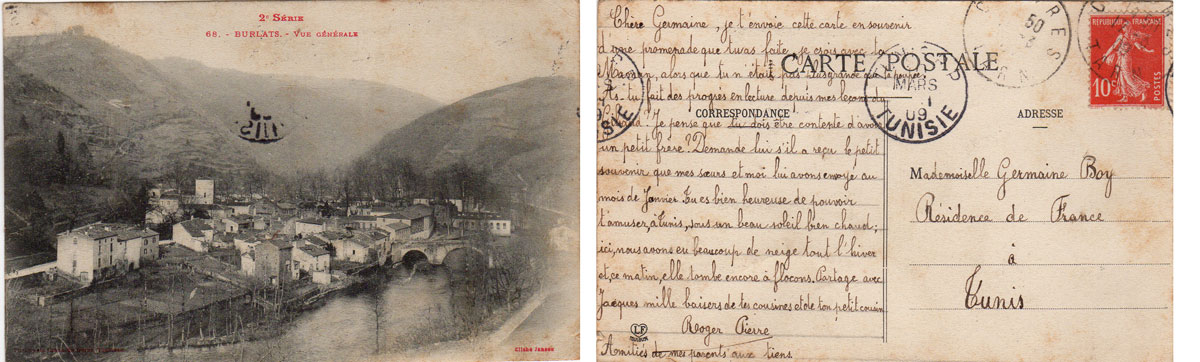 2e SÉRIE
68. - BURLATS. - VUE GÉNÉRALE
Cliché Jansou
Chère Germaine, je t'envoie cette carte en souvenir
d'une promenade que tu as faite, je crois avec ta
Maman, alors que tu n'étais pas plus grande que ta poupée.
As-tu fait des progrès en lecture depuis mes leçons du
? Je pense que tu dois être contente d'avoir
un petit frère? Demande lui s'il a reçu le petit
souvenir que mes sœurs et moi lui avons envoyé au
mois de Janvier. Tu es bien heureuse de pouvoir
t'amuser, à Tunis, sous un beau soleil bien chaud;
ici, nous avons eu beaucoup de neige tout l'hiver
et, ce matin, elle tombe encore à flocons. Partage avec
Jacques mille baisers de tes cousines et de ton petit cousin
Roger Pierre
Amitiés de mes parents aux tiens.
LF
CARTE POSTALE
CORRESPONDANCE
ADRESSE
MARS
09
TUNISIE
TARN
RÉPUBLIQUE FRANÇAISE
10c
Mademoiselle Germaine Boy
Résidence de France
à
Tunis